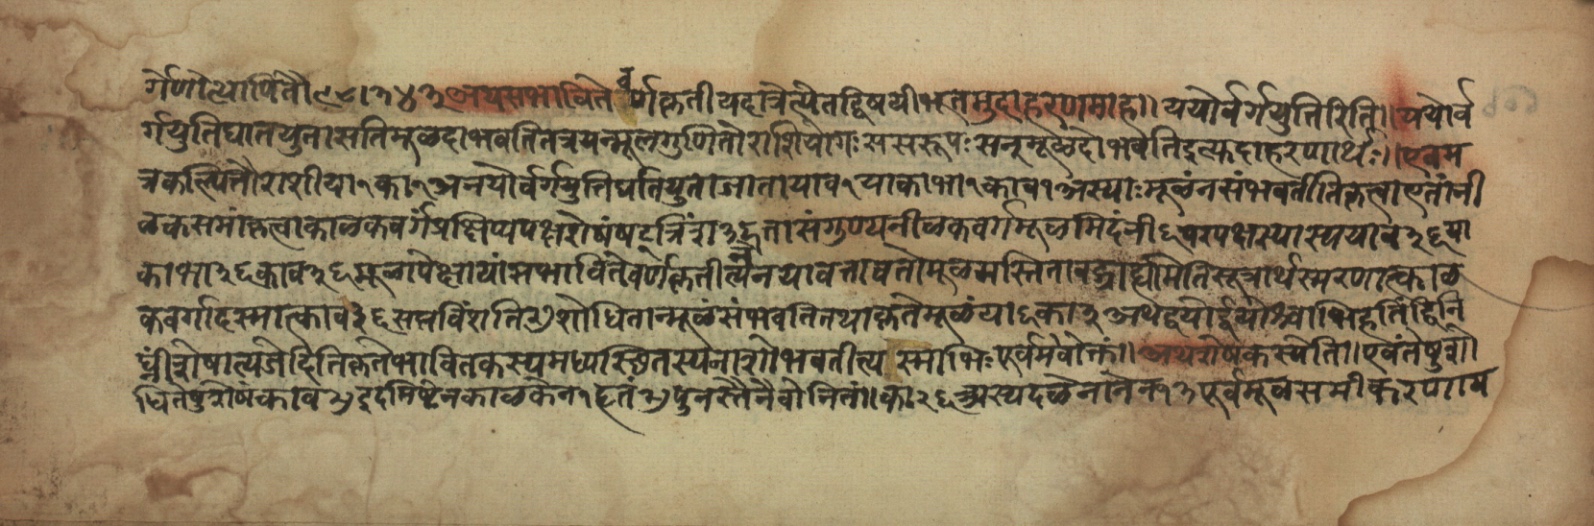 र्गेणोत्थापितौ १८।१७४३ अथ सभाविते वर्णकृती यदात्रेत्येतद्विषयीभूतमुदाहरणमाह॥ ययोर्वर्गयुतिरिति॥ ययोर्व
र्गयुतिघातयुता सति मूळदा भवति तत्र यन्मूलगुणितो राशियोगः स सरूपः सन् मूळदो भवति इत्युदाहरणार्थः॥ एवम
त्र कल्पितौ राशी या१का१ अनयोर्वर्गयुतिर्घातयुता जाता याव१याकाभा१काव१ अस्याः मूळं न संभवतीति कृत्वा एतां नी
ळकसमां कृत्वा काळकवर्गं प्रक्षिप्य पक्षशेषं षट्त्रिंशता संगुण्य नीळकवर्गमूळमिदं नी६ परपक्षस्यास्य याव३६या
काभा३६काव३६ मूळापेक्षायां सभाविते वर्णकृती त्यनेन यावत्तावतो मूळमस्ति तावद्ग्राह्यमिति सूत्रार्थस्मरणात्काळ
कवर्गादस्मात्काव३६ सप्तविंशति शोधितान्मूळं संभवति तथा कृते मूळं या६का३ अथ द्वयोर्द्वयोश्चाभिहतिं द्विनि
घ्नीं शेषात्त्यजेदिति कृते भावितकस्य मध्यस्थितस्य नाशो भवतीत्यस्माभिः पूर्वमेवोक्तं॥ अथ शेषकस्येति॥ एवंतेषु शो
धितेषु शेषं काव इदमिष्टेन काळकेन१ हृतं पुनस्तेनैवोनितं॥ का२६ अस्य दळेनानेन१३ पूर्वमूळसमीकरणाय